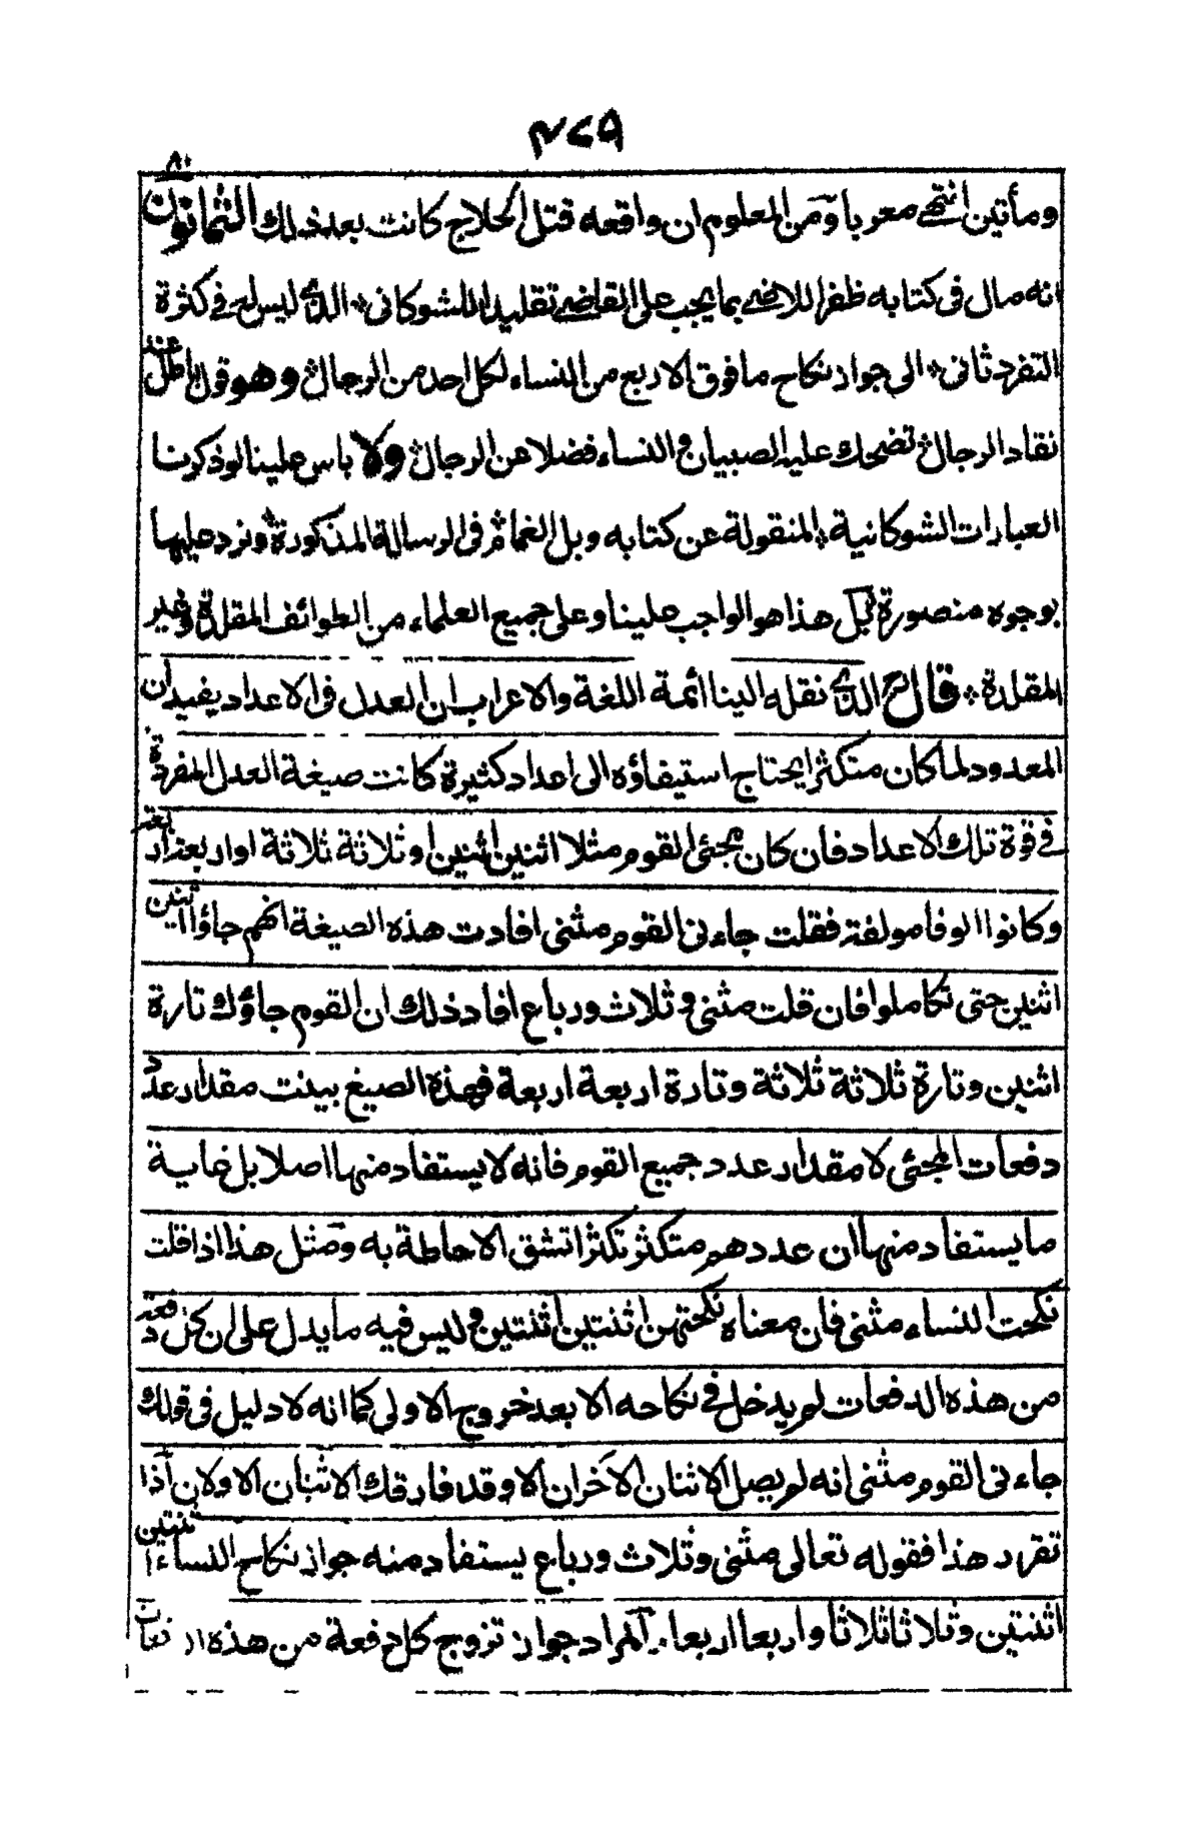 ٣٧٩
٨٠
ومأتين انتهى معربا ومن المعلوم ان واقعه قتل الحلاج كانت بعد ذلك الثمانون
انه مال فى كتابه ظفر اللاضى بما يجب على القاضى تقليدا للشوكانى الذى ليس له فى كثرة
التفرد ثانى الى جواز نكاح ما فوق الاربع من النساء لكل احد من الرجال وهو قول باطل عند
نقاد الرجال تضحك عليه الصبيان والنساء فضلا عن الرجال ولا باس علينا لو ذكرنا
العبارات الشوكانية المنقولة عن كتابه وبل الغمام فى الرسالة المذكورة ونرد عليها
بوجوه منصورة بل هذا هو الواجب علينا وعلى جميع العلماء من الطوائف المقلدة وغير
المقلدة قال الذى نقله الينا ائمة اللغة والاعراب ان العدل فى الاعداد يفيد ان
المعدود لما كان متكثرا يحتاج استيفاؤه الى اعداد كثيرة كانت صيغة العدل المفردة
فى قوة تلك الاعداد فان كان مجئى القوم مثلا اثنين اثنين او ثلاثة ثلاثة او اربعة اربعة
وكانوا الوفا مولفة فقلت جاءنى القوم مثنى افادت هذه الصيغة انهم جاؤا اثنين
اثنين حتى تكاملوا فان قلت مثنى وثلاث ورباع افاد ذلك ان القوم جاؤك تارة
اثنين وتارة ثلاثة ثلاثة وتارة اربعة اربعة فهذه الصيغ بينت مقدار عدد
دفعات المجئى لا مقدار عدد جميع القوم فانه لا يستفاد منها اصلا بل غاية
ما يستفاد منها ان عددهم متكثر تكثرا تشق الاحاطة به ومثل هذا اذا قلت
نكحت النساء مثنى فان معناه نكحتهن اثنتين اثنتين وليس فيه ما يدل على ان كل دفعة
من هذه الدفعات لم يدخل فى نكاحه الا بعد خروج الاولى كما انه لا دليل فى قولك
جاءنى القوم مثنى انه لم يصل الاثنان الآخران الا وقد فارقك الاثنان الاولان اذا
تقرر هذا فقوله تعالى مثنى وثلاث ورباع يستفاد منه جواز نكاح النساء اثنتين
اثنتين وثلاثا ثلاثا واربعا اربعا المراد جواز تزوج كل دفعة من هذه